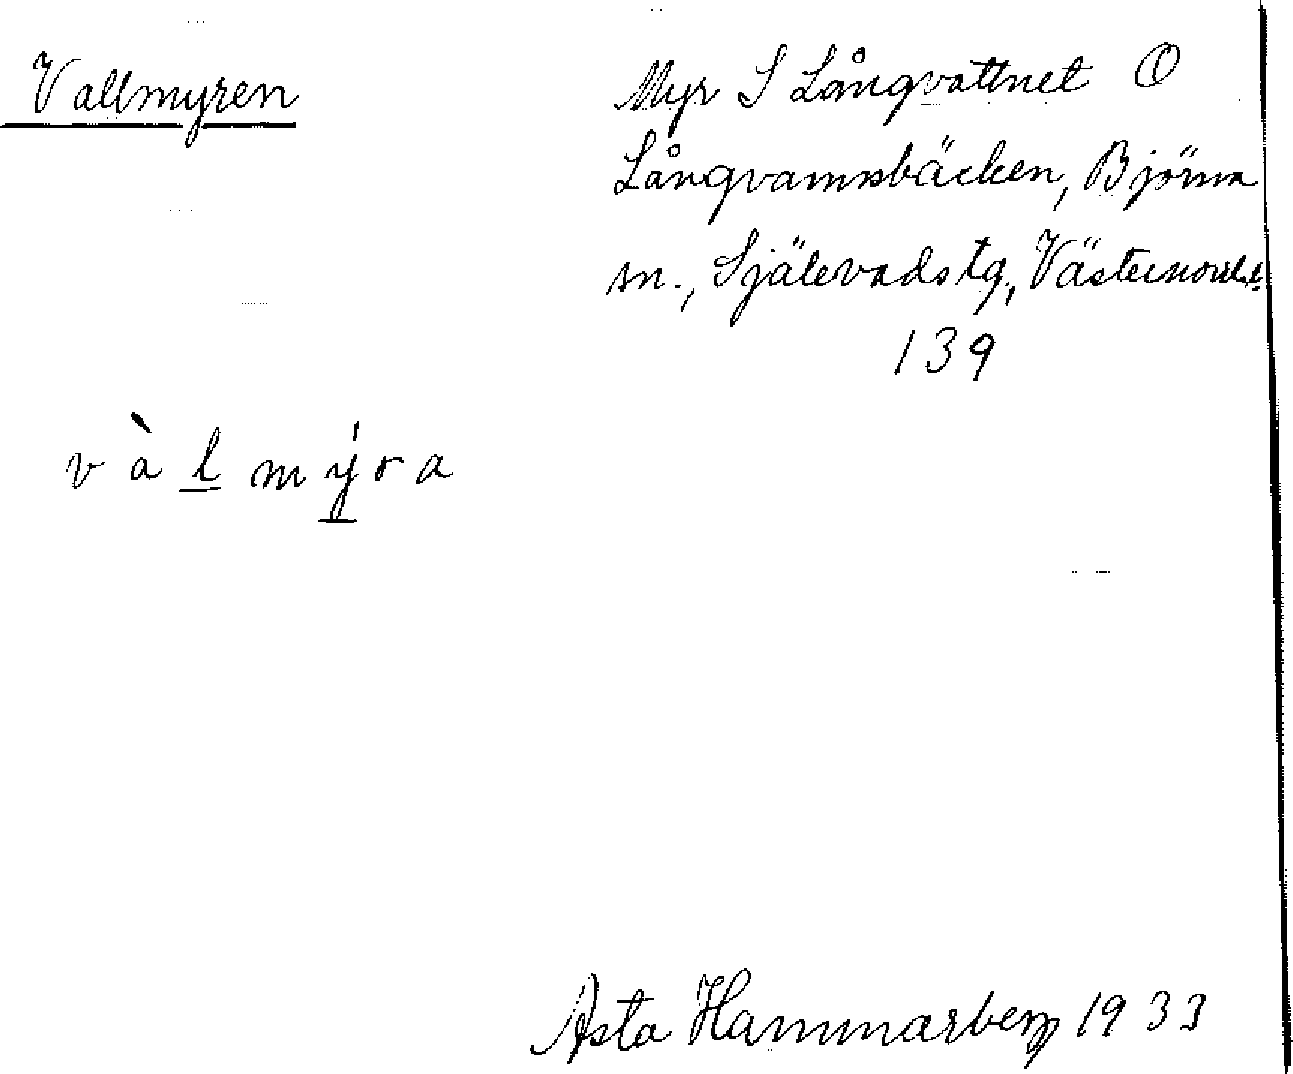 Vallmyren
Myr S Långvattnet Ö
Långvamnsbäcken, Björna
sn., Själevads tg, Västernorrl. l.
139
v à l m ý r a
Asta Hammarberg 1933